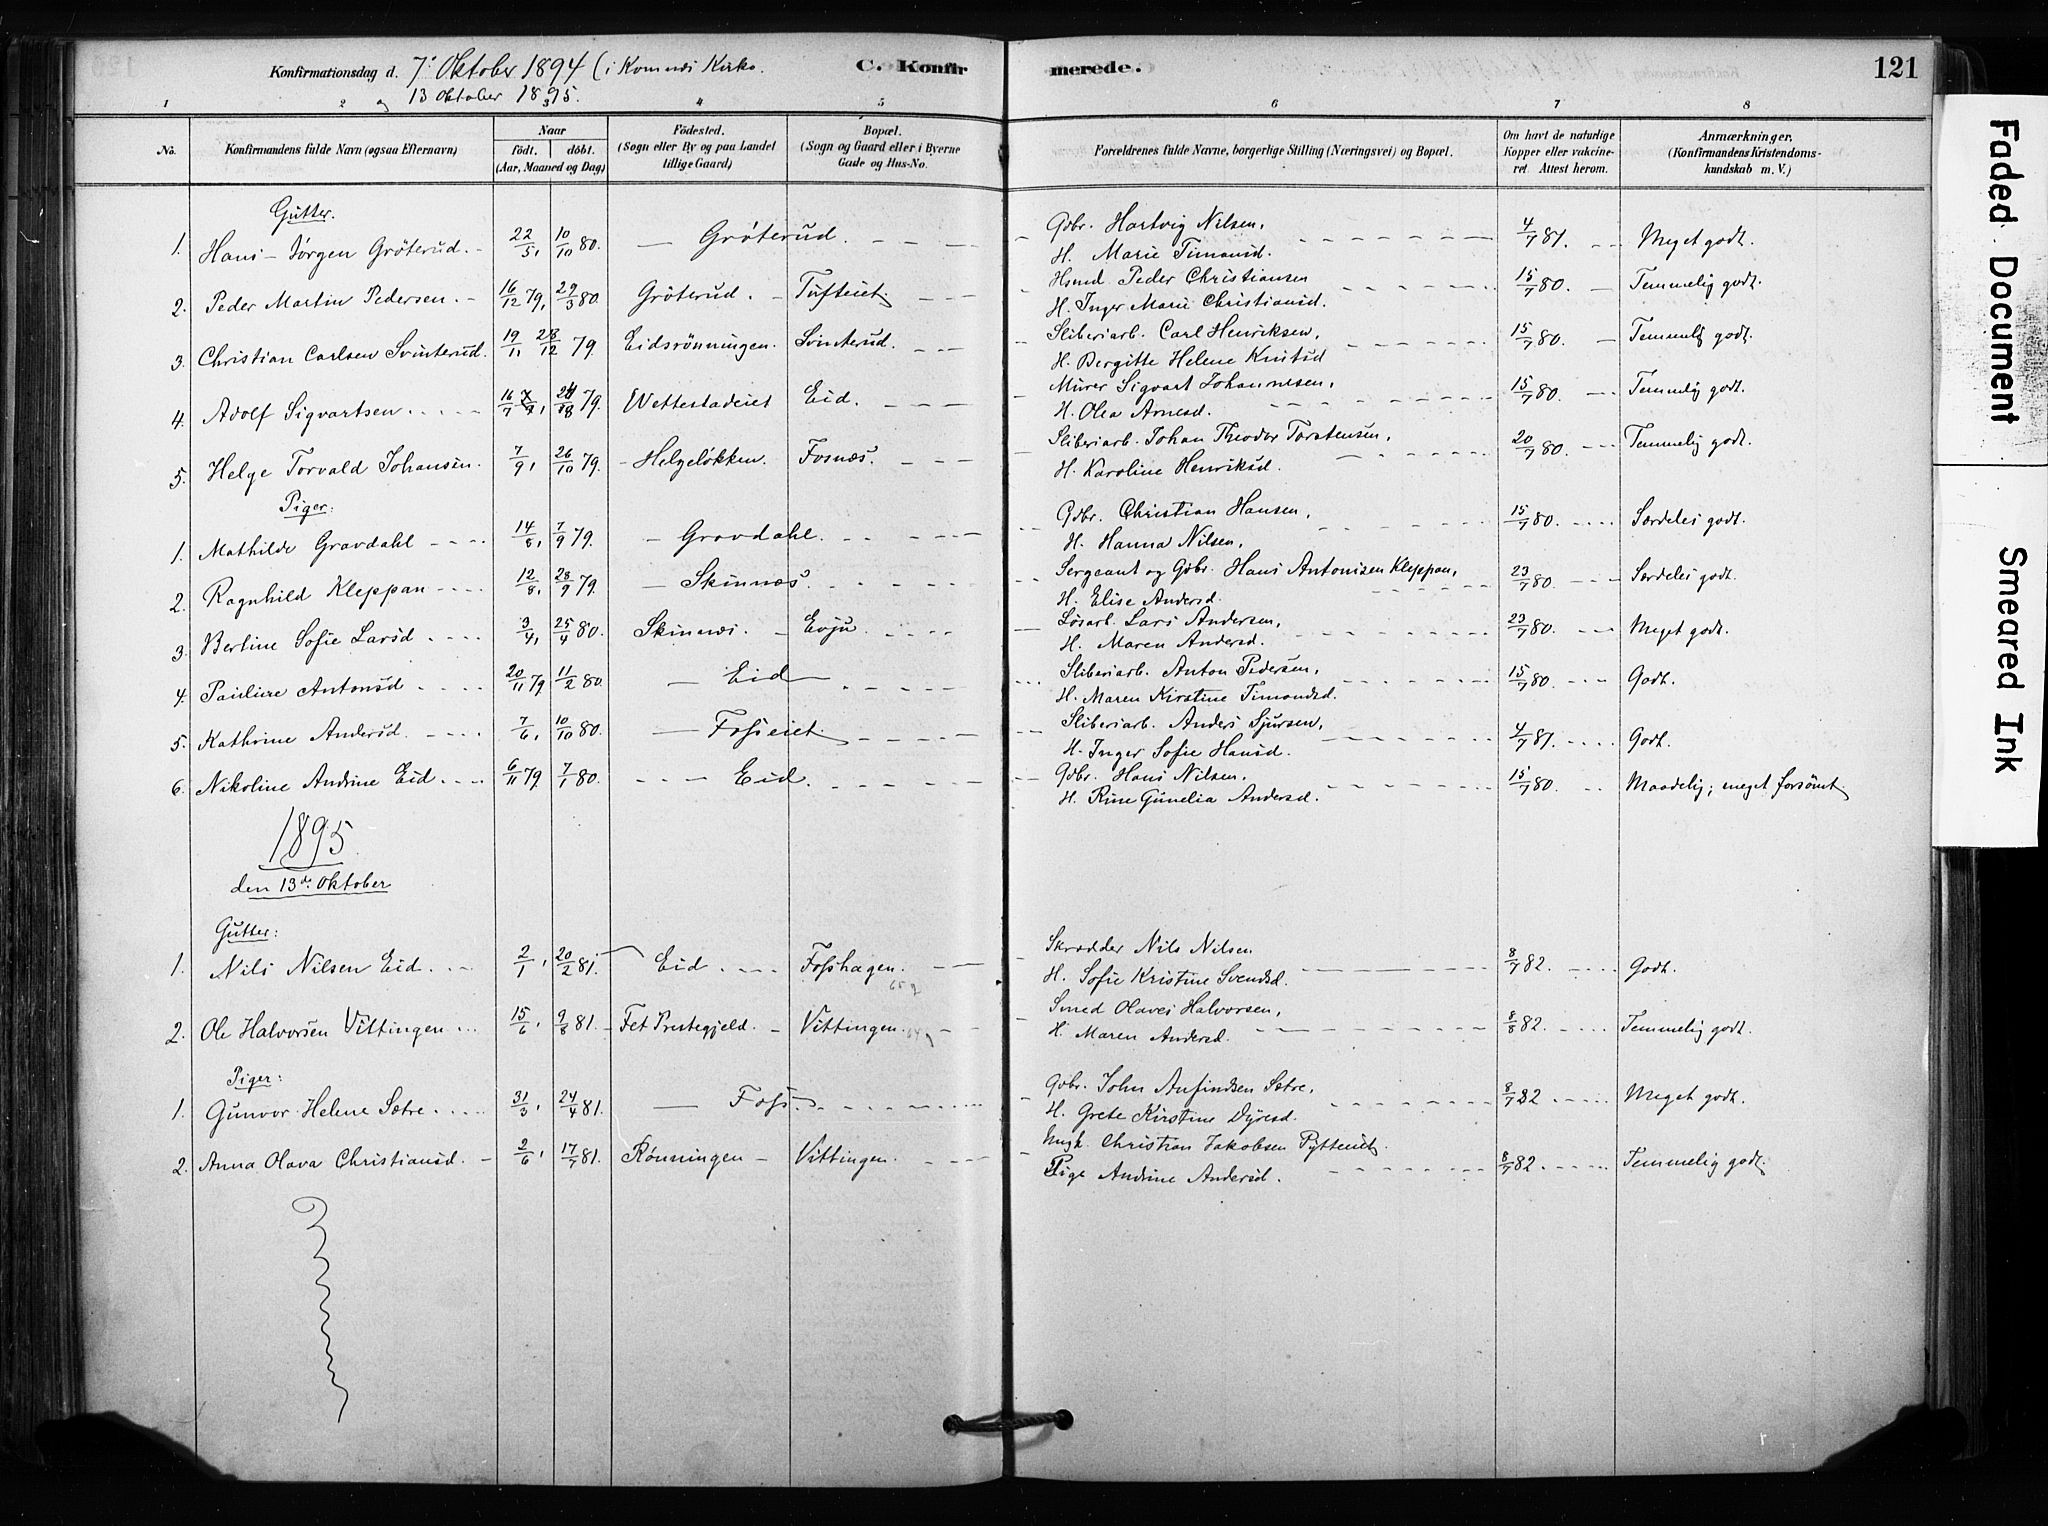 Konfirmationsdag d. 7de Oktober 1894 (i Komnæs Kirke.
og 13 Oktober 1895.
C. Konfirmerede.
121
1 2 3 4 5 6 7 8
No.
Konfirmandens fulde Navn (ogsaa Efternavn)
Naar
født. døbt.
(Aar, Maaned og Dag)
Fødested.
(Sogn eller By og paa Landet
tillige Gaard)
Bopæl.
(Sogn og Gaard eller i Byerne
Gade og Hus-No.
Forældrenes fulde Navne, borgerlige Stilling (Næringsvei) og Bopæl.
Om havt de naturlige
Kopper eller vakcine-
ret Attest herom.
Anmærkninger.
(Konfirmandens Kristendoms-
kundskab m. V.)
Gutter.
1. Hans Jørgen Grøterud. 22/5, 10/10 80. Grøterud. Gdbr. Hartvig Nilsen, H. Marie Timansd. 4/7 81. Meget godt.
2. Peder Martin Pedersen. 16/12 79, 29/3 80. Grøterud. Tufteiet. Hsmd Peder Christiansen H. Inger Marie Christiansd. 15/7 80. Temmelig godt.
3. Christian Carlsen Svinterud. 19/11 28/12 79. Eidsrønningen. Svinterud. Sliberiarb. Carl Henriksen, H. Bergitte Helene Knutsd 15/7 80. Temmelig godt.
4. Adolf Sigvartsen 16/7, 24/8 79. Wettestadeiet Eid. Murer Sigvart Johannesen, H. Olea Arnesd. 15/7 80. Temmelig godt.
5. Helge Torvald Johansen. 7/9, 26/10 79. Helgeløkken. Fosnæs. Sliberiarb. Johan Theodor Torstensen, H. Karoline Henriksd. 20/7 80. Temmelig godt.
Piger:
1. Mathilde Gravdahl 14/8, 7/9 79. Gravdahl. Gdbr. Christian Hansen, H. Hanna Nilsen, 15/7 80. Særdeles godt.
2. Ragnhild Kleppan 12/8, 28/9 79. Skinnæs. Sergeant og Gdbr. Hans Antonisen Kleppan, H. Elise Andersd. 23/7 80. Særdeles godt.
3. Bertine Sofie Larsd 3/4, 25/4 80. Skinnæs. Evju. Løsarb. Lars Andersen, H. Maren Andersd. 23/7 80. Meget godt.
4. Pauline Antonsd 20/11 79 11/2 80. Eid Sliberiarb. Anton Pedersen, H. Maren Kirstine Timandsd. 15/7 80. Godt.
5. Kathrine Andersd. 7/6, 10/10 80. Fosseiet. Sliberiarb. Anders Sjursen, H. Inger Sofie Hansd. 4/7 81. Godt.
6. Nikoline Andrine Eid. 6/11 79. 7/1 80. Eid. Gdbr. Hans Nilsen, H. Rine Gunelia Andersd. 15/7 80. Maadelig; meget forsømt.
1895
den 13de Oktober
Gutter:
1. Nils Nilsen Eid. 2/1, 20/2 81. Eid. Fosshagen. Skrædder Nils Nilsen H. Sofie Kristine Svendsd. 8/7 82. Godt.
2. Ole Halvorsen Vittingen 15/6, 9/8 81. Fet Prestegjeld. Vittingen. Smed Olaves Halvorsen, H. Maren Andersd. 8/8 82. Temmelig godt.
Piger:
1. Gunvor Helene Sætre. 31/3, 24/4 81. Foss. Gdbr. John Anfindsen Sætre, H. Grete Kirstine Dyresd. 8/7 82 Meget godt.
2. Anna Olava Christiansd. 2/6, 17/7 81. Rønningen Vittingen. Ungk. Christian Jakobsen Pytteiet. Pige Andrine Andersd. 8/7 82. Temmelig godt.
Faded Document
Smeared Ink